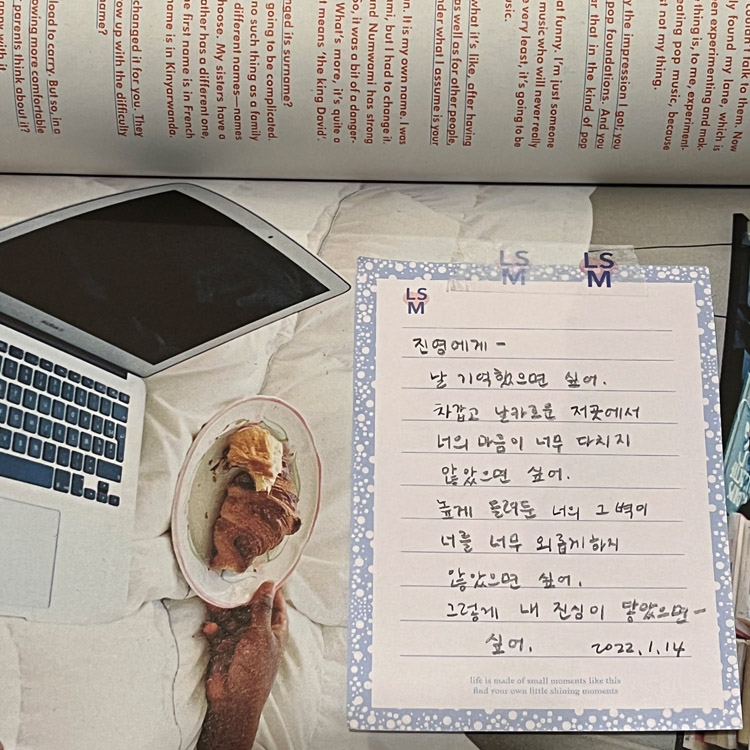 talk to them. Now
found my lane, which is
experimenting and
thing is, to me, experiment-
pop music, because
not my thing.
the impression I got; you
pop foundations. And you
that in the kind of pop
funny. I'm just someone
music who will never really
very least, it's going to be
what it's like, after having
as well as for other people,
what I assume is your
It is my own name. I was
but I had to change it.
Numwami has strong
So, it was a bit of a danger-
What's more, it's quite a
means 'the king David'.
its surname?
going to be complicated.
no such thing as a family
different names—names
My sisters have a
other has a different one,
first name is in French
name is in Kinyarwanda.
changed it for you. They
up with the difficulty
name?
load to carry. But so, in a
more comfortable
parents think about it?
with it
LS
M
LS
M
LS
M
진영에게 -
날 기억했으면 싶어.
차갑고 날카로운 저곳에서
너의 마음이 너무 다치지
않았으면 싶어.
높게 둘러둔 너의 그 벽이
너를 너무 외롭게하지
않았으면 싶어.
그렇게 내 진심이 닿았으면-
싶어. 2022.1.14
life is made of small moments like this
find your own little shining moments